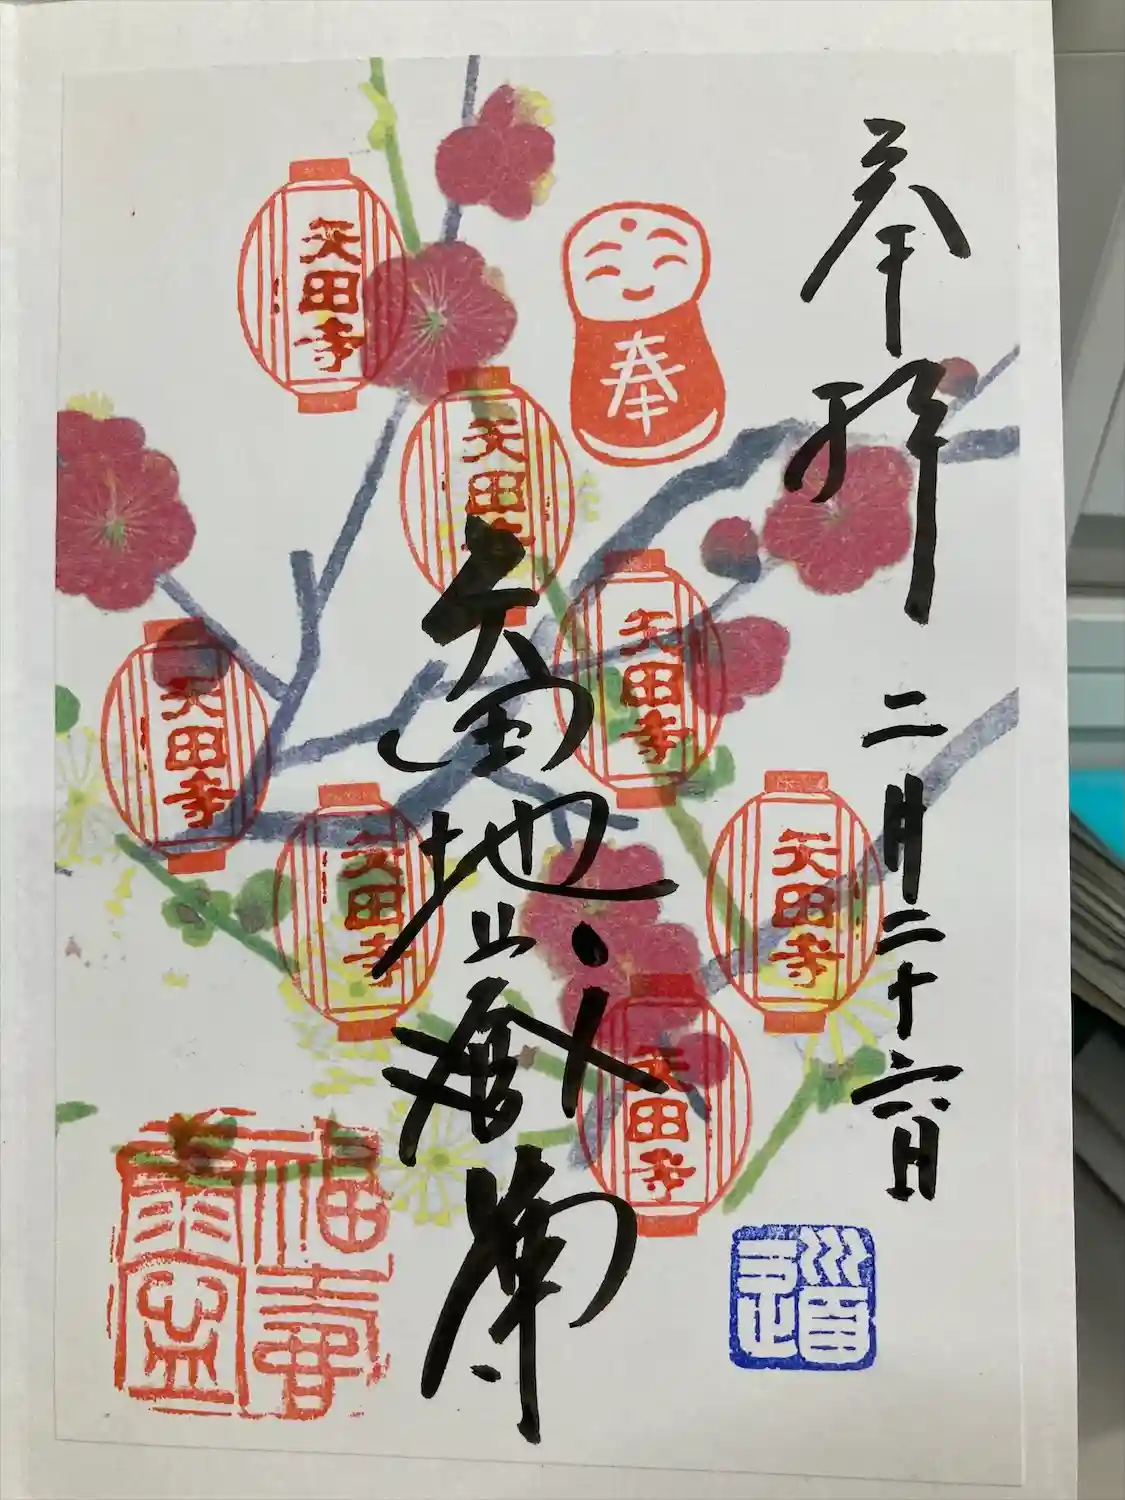 奉拝
二月二十六日
奉
矢田地蔵尊
矢田寺
矢田寺
矢田寺
矢田寺
矢田寺
矢田寺
矢田寺